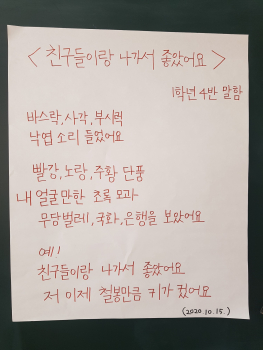 <친구들이랑 나가서 좋았어요>
1학년 4반 말함
바스락, 사각, 부시럭
낙엽 소리 들었어요
빨강, 노랑, 주황 단풍
내 얼굴만한 초록 모과
무당벌레, 국화, 은행을 보았어요
예!
친구들이랑 나가서 좋았어요
저 이제 철봉만큼 키가 컸어요
(2020.10.15.)